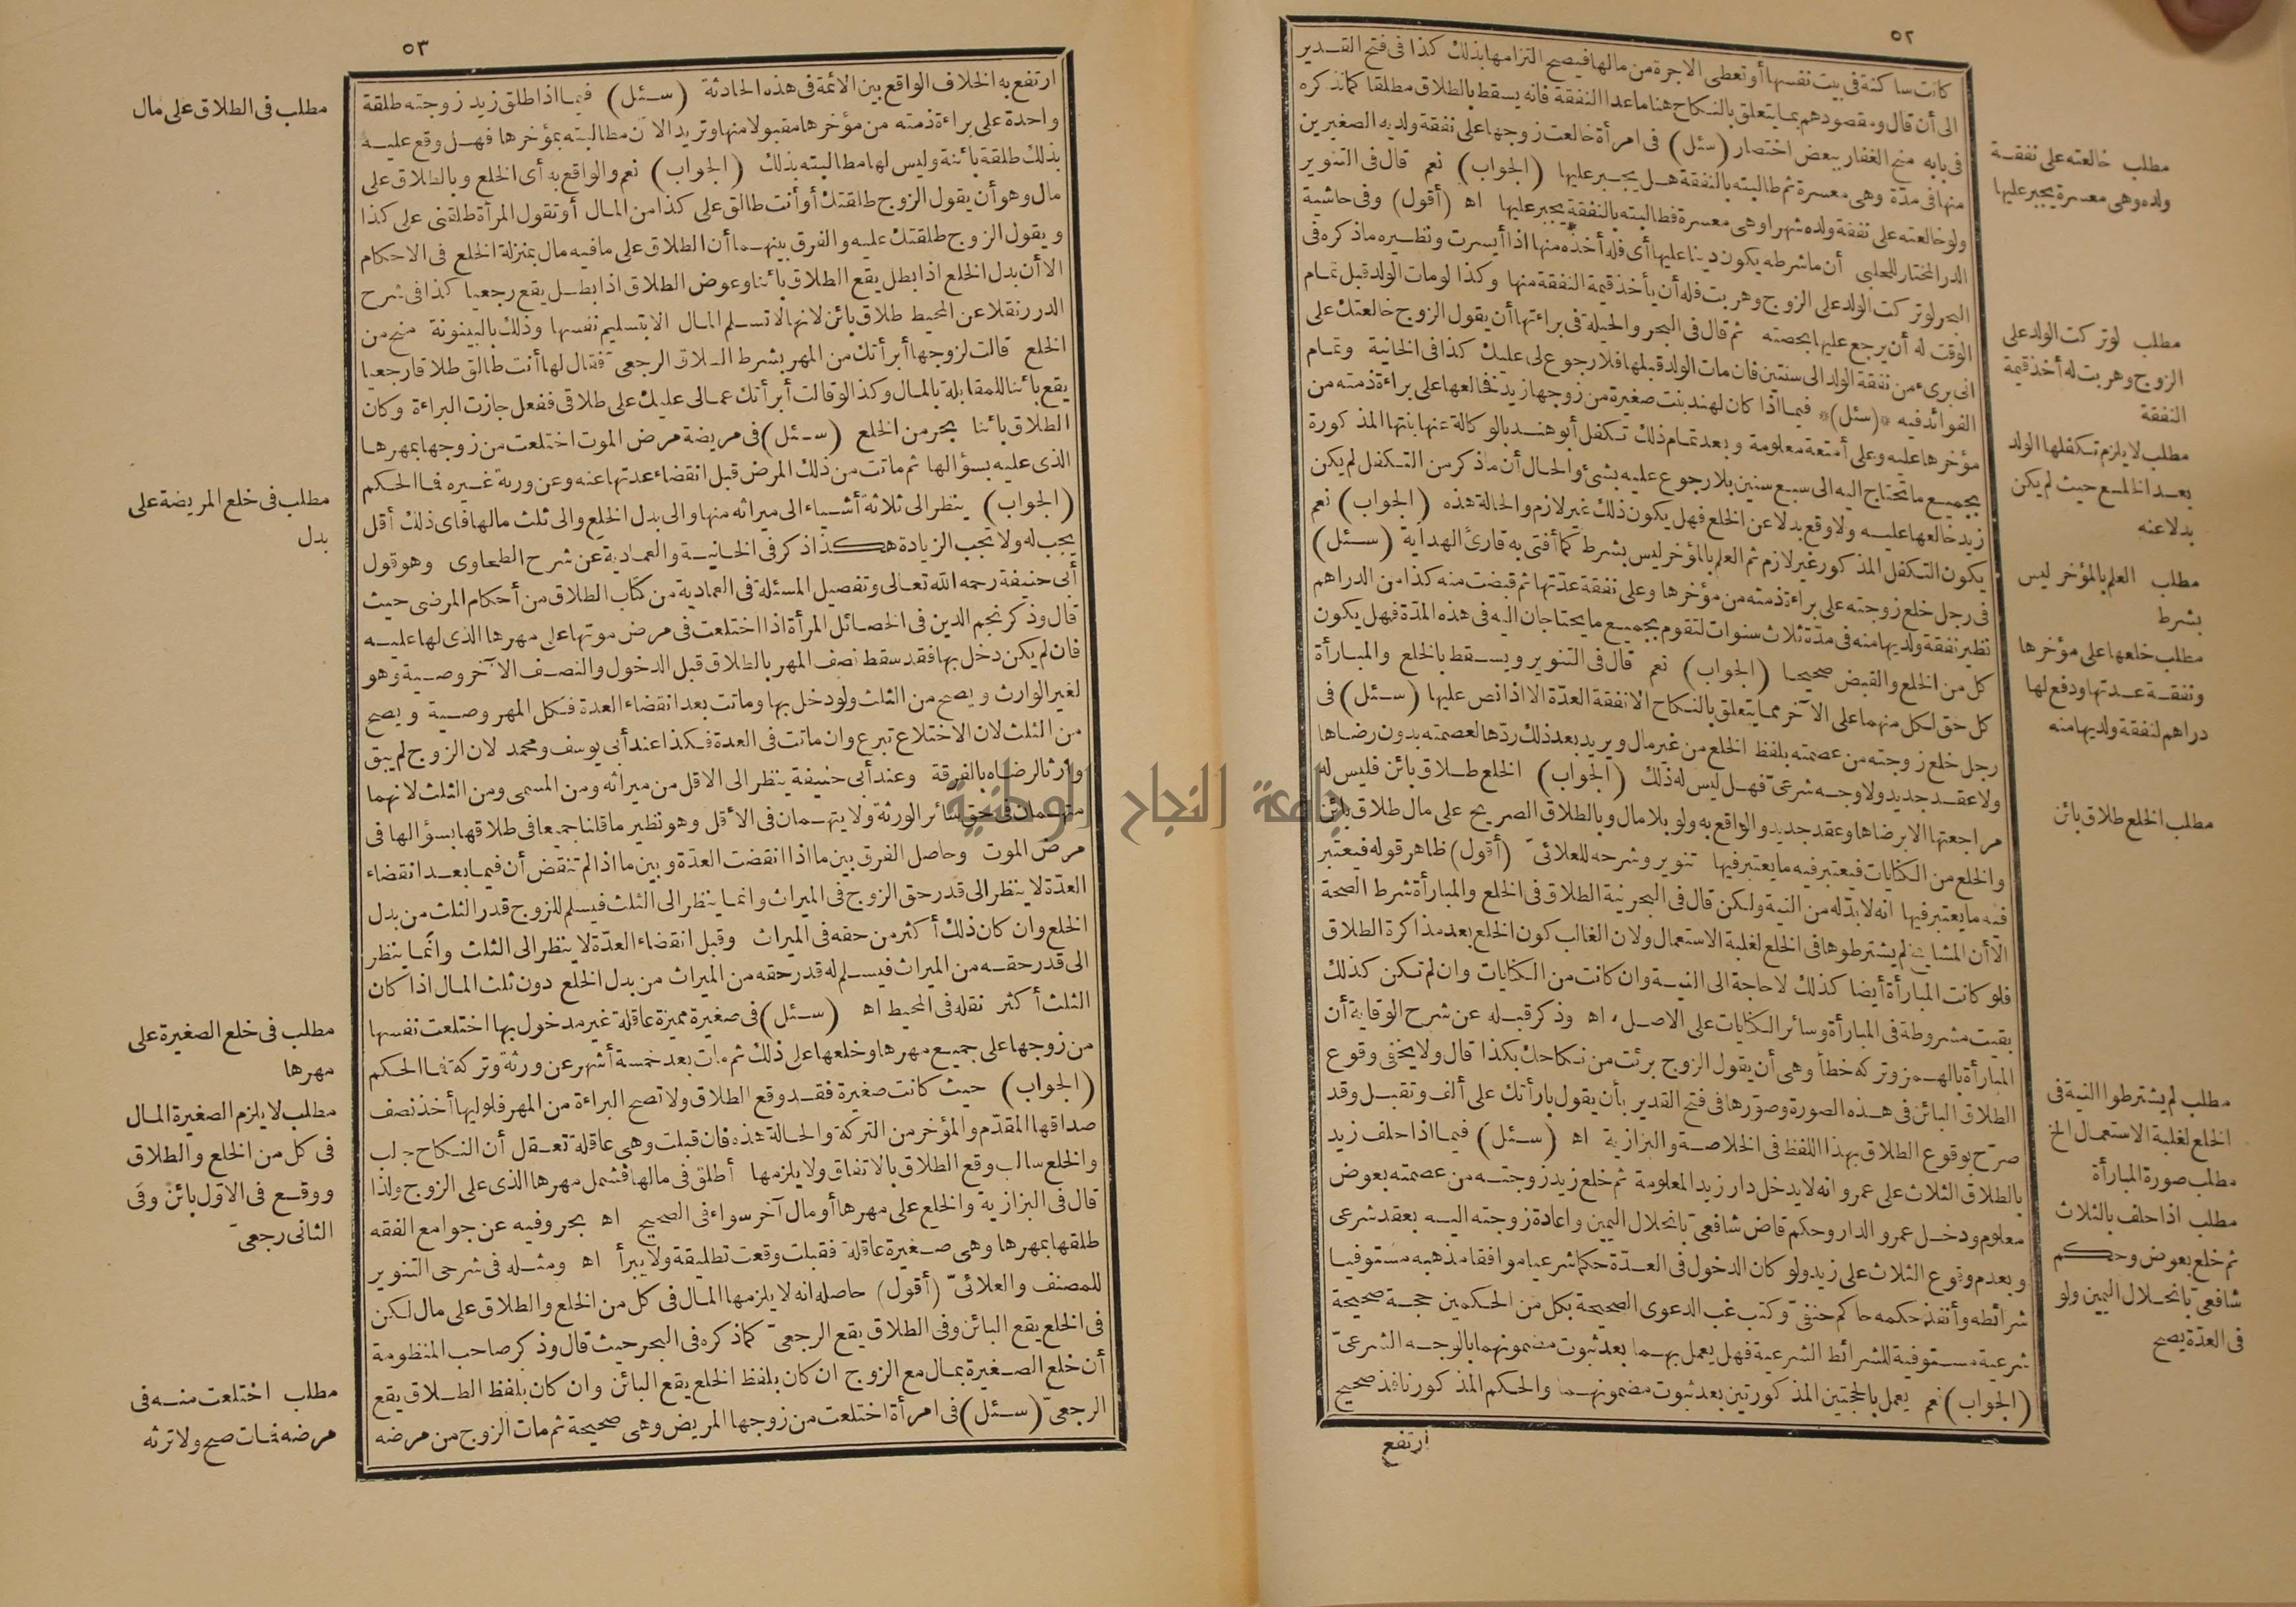 ٥٢
كانت ساكنة فى بيت نفسها أو تعطى الاجرة من مالها فيصح التزامها بذلك كذا فى فتح القدير
الى أن قال ومقصودهم بما يتعلق بالنكاح هنا ماعدا النفقة فانه يسقط بالطلاق مطلقا كما نذكره
فى بابه منح الغفار ببعض اختصار (سئل) فى امرأة خالعت زوجها على نفقة ولديه الصغيرين
منها فى مدّة وهى معسرة ثم طالبته بالنفقة هل يجبر عليها (الجواب) نعم قال فى التنوير
ولو خالعته على نفقة ولده شهرا وهى معسرة فطالبته بالنفقة يجبر عليها اه (أقول) وفى حاشية
الدر المختار للحلبى أن ماشرطه يكون دينا عليها أى فله أخذه منها اذا أيسرت ونظيره ماذكره فى
البحر لو تركت الولد على الزوج وهربت فله أن يأخذ قيمة النفقة منها وكذا لو مات الولد قبل تمام
الوقت له أن يرجع عليها بحصته ثم قال فى البحر والحيلة فى براءتها أن يقول الزوج خالعتك على
انى برىء من نفقة الولد الى سنتين فان مات الولد قبلها فلا رجوع لى عليك كذا فى الخانية وتمام
الفوائد فيه *(سئل)* فيما اذا كان لهند بنت صغيرة من زوجها زيد فخالعها على براءة ذمته من
مؤخرها عليه وعلى أمتعة معلومة وبعد تمام ذلك تكفل أبو هند بالوكالة عنها بنتها المذكورة
بجميع ما تحتاج اليه الى سبع سنين بلا رجوع عليه بشئ والحال أن ماذكر من التكفل لم يكن
زيد خالعها عليه ولا وقع بدلا عن الخلع فهل يكون ذلك غير لازم والحالة هذه (الجواب) نعم
يكون التكفل المذكور غير لازم ثم العلم بالمؤخر ليس بشرط كما أفتى به قارئ الهداية (سئل)
فى رجل خلع زوجته على براءة ذمته من مؤخرها وعلى نفقة عدّتها ثم قبضت منه كذا من الدراهم
نظير نفقة ولديها منه فى مدّة ثلاث سنوات لتقوم بجميع ما يحتاجان اليه فى هذه المدّة فهل يكون
كل من الخلع والقبض صحيحا (الجواب) نعم قال فى التنوير ويسقط بالخلع والمبارأة
كل حق لكل منهما على الآخر مما يتعلق بالنكاح الا نفقة العدّة الا اذا نص عليها (سئل) فى
رجل خلع زوجته من عصمته بلفظ الخلع من غير مال ويريد بعد ذلك ردّها لعصمته بدون رضاها
ولا عقد جديد ولا وجه شرعىّ فهل ليس له ذلك (الجواب) الخلع طلاق بائن فليس له
مراجعتها الا برضاها وعقد جديد والواقع به ولو بلا مال وبالطلاق الصريح على مال طلاق بائن
والخلع من الكنايات فيعتبر فيه ما يعتبر فيها تنوير وشرحه للعلائىّ (أقول) ظاهر قوله فيعتبر
فيه ما يعتبر فيها انه لا بدّ له من النية ولكن قال فى البحر نية الطلاق فى الخلع والمبارأة شرط الصحة
الا أن المشايخ لم يشترطوها فى الخلع لغلبة الاستعمال ولان الغالب كون الخلع بعد مذاكرة الطلاق
فلو كانت المبارأة أيضا كذلك لا حاجة الى النية وان كانت من الكنايات وان لم تكن كذلك
بقيت مشروطة فى المبارأة وسائر الكنايات على الاصل اه وذكر قبله عن شرح الوقاية أن
المبارأة بالهمز وتركه خطأ وهى أن يقول الزوج برئت من نكاحك بكذا قال ولا يخفى وقوع
الطلاق البائن فى هذه الصورة وصوّرها فى فتح القدير بأن يقول بارأتك على ألف وتقبل وقد
صرّح بوقوع الطلاق بهذا اللفظ فى الخلاصة والبزازية اه (سئل) فيما اذا حلف زيد
بالطلاق الثلاث على عمرو انه لا يدخل دار زيد المعلومة ثم خلع زيد زوجته من عصمته بعوض
معلوم ودخل عمرو الدار وحكم قاض شافعىّ بانحلال اليمين واعادة زوجته اليه بعقد شرعى
وبعدم وقوع الثلاث على زيد ولو كان الدخول فى العدّة حكما شرعيا موافقا مذهبه مستوفيا
شرائطه وأنفذ حكمه حاكم حنفىّ وكتب غب الدعوى الصحيحة بكل من الحكمين حجة صحيحة
شرعية مستوفية للشرائط الشرعية فهل يعمل بهما بعد ثبوت مضمونهما بالوجه الشرعىّ
(الجواب) نعم يعمل بالحجتين المذكورتين بعد ثبوت مضمونهما والحكم المذكور نافذ صحيح
ارتفع
مطلب خالعته على نفقة
ولده وهى معسرة يجبر عليها
مطلب لو تركت الولد على
الزوج وهربت له أخذ قيمة
النفقة
مطلب لا يلزم تكفلها الولد
بعد الخلع حيث لم يكن
بدلا عنه
مطلب العلم بالمؤخر ليس
بشرط
مطلب خلعها على مؤخرها
ونفقة عدتها ودفع لها
دراهم لنفقة ولديها منه
مطلب الخلع طلاق بائن
مطلب لم يشترطوا النية فى
الخلع لغلبة الاستعمال الخ
مطلب صورة المبارأة
مطلب اذا حلف بالثلاث
ثم خلع بعوض وحكم
شافعىّ بانحلال اليمين ولو
فى العدّة يصح
٥٣
ارتفع به الخلاف الواقع بين الائمة فى هذه الحادثة (سئل) فيما اذا طلق زيد زوجته طلقة
واحدة على براءة ذمته من مؤخرها مقبولا منها وتريد الآن مطالبته بمؤخرها فهل وقع عليه
بذلك طلقة بائنة وليس لها مطالبته بذلك (الجواب) نعم والواقع به أى الخلع وبالطلاق على
مال وهو أن يقول الزوج طلقتك أو أنت طالق على كذا من المال أو تقول المرآة طلقنى على كذا
ويقول الزوج طلقتك عليه والفرق بينهما أن الطلاق على مافيه مال بمنزلة الخلع فى الاحكام
الا أن بدل الخلع اذا بطل يقع الطلاق بائنا وعوض الطلاق اذا بطل يقع رجعيا كذا فى شرح
الدرر نقلا عن المحيط طلاق بائن لانها لا تسلم المال الا بتسليم نفسها وذلك بالبينونة منح من
الخلع قالت لزوجها أبرأتك من المهر بشرط الطلاق الرجعى فقال لها أنت طالق طلاقا رجعيا
يقع بائنا للمقابلة بالمال وكذا لو قالت أبرأتك عمالى عليك على طلاقى ففعل جازت البراءة وكان
الطلاق بائنا بحر من الخلع (سئل) فى مريضة مرض الموت اختلعت من زوجها بمهرها
الذى عليه بسؤالها ثم ماتت من ذلك المرض قبل انقضاء عدتها عنه وعن ورثة غيره فما الحكم
(الجواب) ينظر الى ثلاثة أشياء الى ميراثه منها والى بدل الخلع والى ثلث مالها فاى ذلك أقل
يجب له ولا تجب الزيادة هكذا ذكر فى الخانية والعمادية عن شرح الطحاوى وهو قول
أبى حنيفة رحمه الله تعالى وتفصيل المسئلة فى العمادية من كتاب الطلاق من أحكام المرضى حيث
قال وذكر نجم الدين فى الخصائل المرأة اذا اختلعت فى مرض موتها على مهرها الذى لها عليه
فان لم يكن دخل بها فقد سقط نصف المهر بالطلاق قبل الدخول والنصف الآخر وصية وهو
لغير الوارث ويصح من الثلث ولو دخل بها وماتت بعد انقضاء العدة فكل المهر وصية ويصح
من الثلث لان الاختلاع تبرع وان ماتت فى العدة فكذا عند أبى يوسف ومحمد لان الزوج لم يبق
وارثا لرضاه بالفرقة وعند أبى حنيفة ينظر الى الاقل من ميراثه ومن المسمى ومن الثلث لانهما
متهمان فى حق سائر الورثة ولا يتهمان فى الأقل وهو نظير ماقلنا جميعا فى طلاقها بسؤالها فى
مرض الموت وحاصل الفرق بين ما اذا انقضت العدّة وبين ما اذا لم تنقض أن فيما بعد انقضاء
العدّة لا ينظر الى قدر حق الزوج فى الميراث وانما ينظر الى الثلث فيسلم للزوج قدر الثلث من بدل
الخلع وان كان ذلك أكثر من حقه فى الميراث وقبل انقضاء العدّة لا ينظر الى الثلث وانما ينظر
الى قدر حقه من الميراث فيسلم له قدر حقه من الميراث من بدل الخلع دون ثلث المال اذا كان
الثلث أكثر نقله فى المحيط اه (سئل) فى صغيرة مميزة عاقلة غير مدخول بها اختلعت نفسها
من زوجها على جميع مهرها وخلعها على ذلك ثم مات بعد خمسة أشهر عن ورثة وتركة فما الحكم
(الجواب) حيث كانت صغيرة فقد وقع الطلاق ولا تصح البراءة من المهر فلوليها أخذ نصف
صداقها المقدّم والمؤخر من التركة والحالة هذه فان قبلت وهى عاقلة تعقل أن النكاح جالب
والخلع سالب وقع الطلاق بالاتفاق ولا يلزمها أطلق فى مالها فشمل مهرها الذى على الزوج ولذا
قال فى البزازية والخلع على مهرها أو مال آخر سواء فى الصحيح اه بحر وفيه عن جوامع الفقه
طلقها بمهرها وهى صغيرة عاقلة فقبلت وقعت تطليقة ولا يبرأ اه ومثله فى شرحى التنوير
للمصنف والعلائىّ (أقول) حاصله انه لا يلزمها المال فى كل من الخلع والطلاق على مال لكن
فى الخلع يقع البائن وفى الطلاق يقع الرجعىّ كما ذكره فى البحر حيث قال وذكر صاحب المنظومة
أن خلع الصغيرة بمال مع الزوج ان كان بلفظ الخلع يقع البائن وان كان بلفظ الطلاق يقع
الرجعىّ (سئل) فى امرأة اختلعت من زوجها المريض وهى صحيحة ثم مات الزوج من مرضه
مطلب فى الطلاق على مال
مطلب فى خلع المريضة على
بدل
مطلب فى خلع الصغيرة على
مهرها
مطلب لا يلزم الصغيرة المال
فى كل من الخلع والطلاق
ووقع فى الاوّل بائن وفى
الثانى رجعىّ
مطلب اختلعت منه فى
مرضه فمات صح ولا ترثه
جامعة النجاح الوطنية